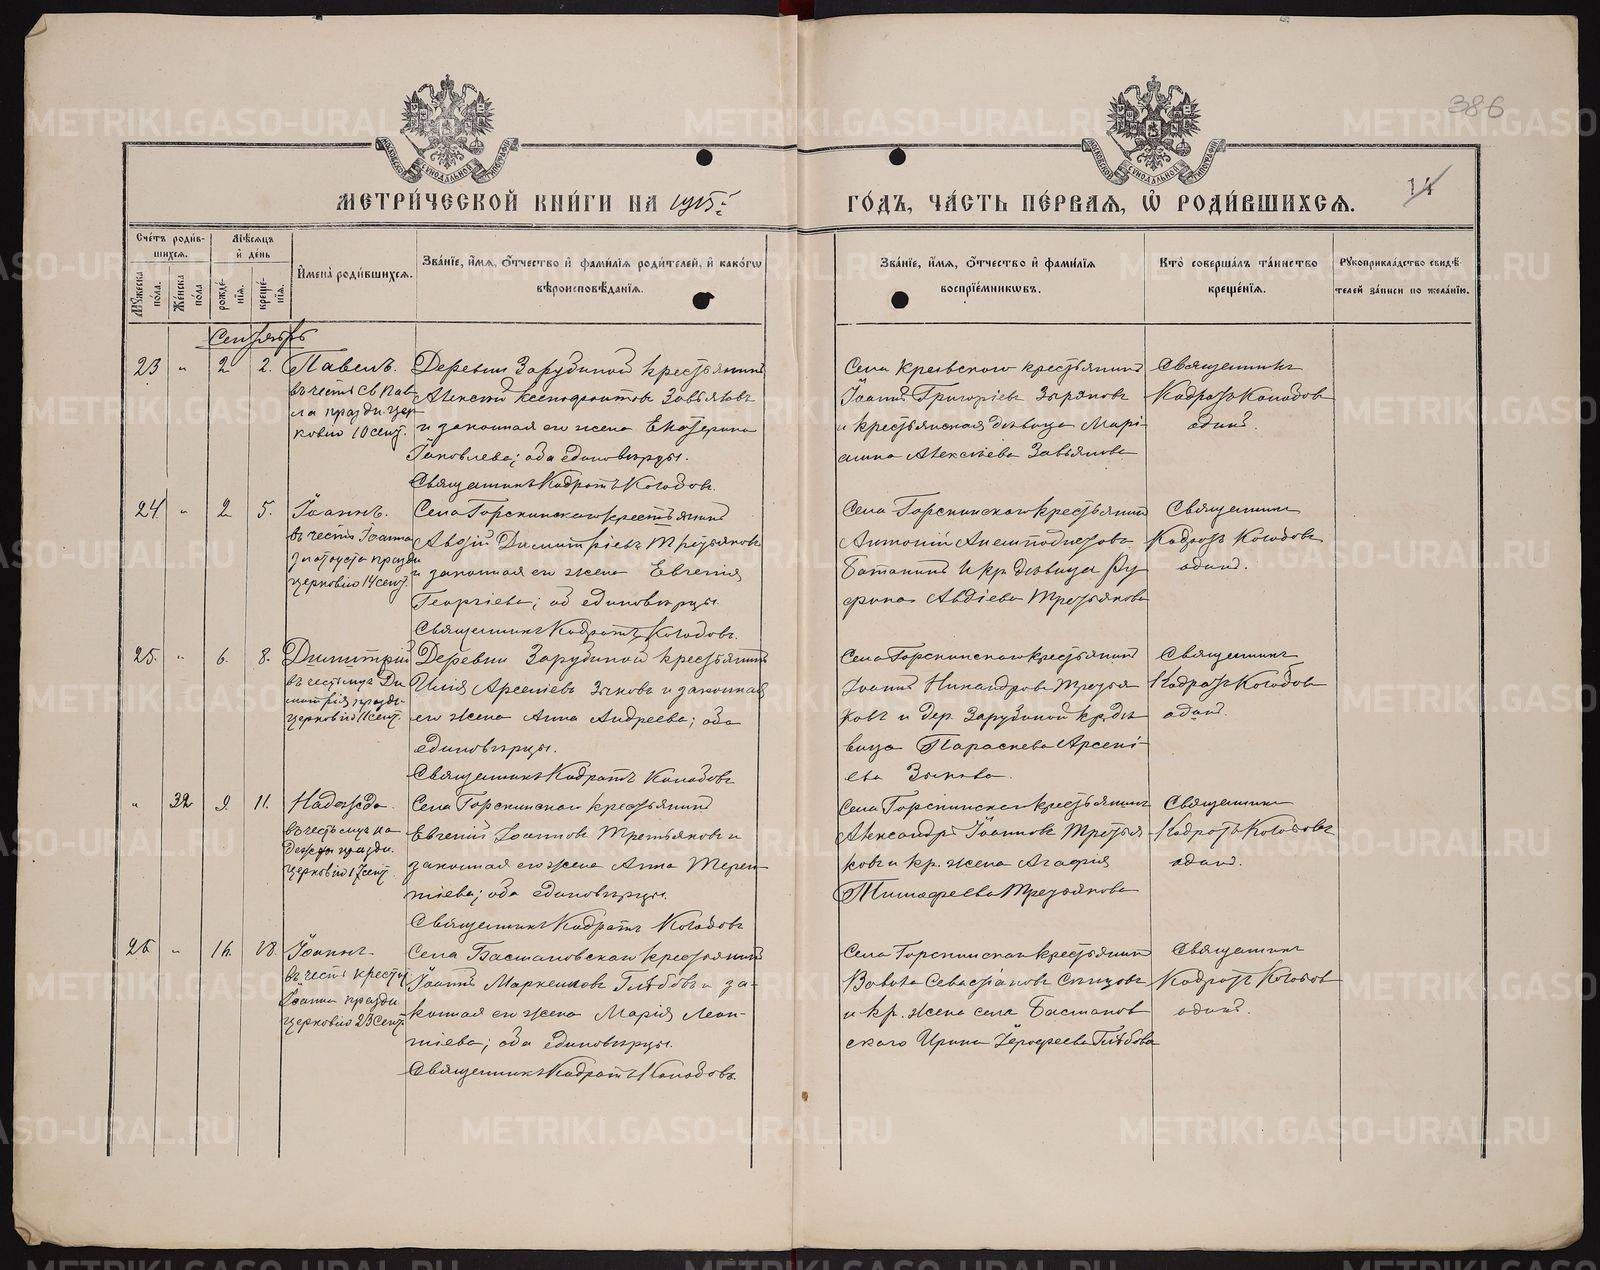 386
14
МЕТРИ́ЧЕСКОЙ КНИ́ГИ НА 1915 й
ГО́ДЪ, ЧА́СТЬ ПЕ́РВАЯ, Ѡ҆ РОДИ́ВШИХСЯ.
Сче́тъ роди́в-
шихся.
Мꙋ́жеска по́ла.
Же́нска по́ла
Мѣ́сяцъ
и҆ де́нь
рожде́-нїя.
креще́-нїя.
И҆мена̀ роди́вшихся.
Зва́нїе, и҆́мя, ѻ҆́тчество и҆ фами́лїя роди́телей, и҆ како́гѡ
вѣроисповѣ́данїя.
Зва́нїе, и҆́мя, ѻ҆́тчество и҆ фами́лїя
воспрїе́мникѡвъ.
Кто̀ соверша́лъ та́инство
креще́нїя.
Рꙋкоприкла́дство свидѣ́-
телей за́писи по жела́нїю.
Сентябрь
23 „ 2 2. Павелъ.
въ честь св. Пав-
ла празди. цер-
ковію 10 сент.
Деревни Зарубиной крестьянинъ
Алексій Ксенофонтовъ Завьяловъ
и законная его жена Екатерина
Іаковлева; оба единовѣрцы.
Священникъ Кодратъ Колодовъ.
Села Краевскаго крестьянинъ
Іоаннъ Григоріевъ Зыряновъ
и крестьянская дѣвица Марі-
анна Алексіева Завьялова
Священникъ
Кодратъ Колодов
один.
24. „ 2 5. Іоаннъ.
въ честь Іоанна
Златоуста праздн
церковію 14 сент.
Села Горскинскаго крестьянинъ
Авдій Димитріевъ Третьяковъ
и законная его жена Евгенія
Георгіева; об единовѣрцы.
Священникъ Кодратъ Колодовъ.
Села Горскинскаго крестьянинъ
Антоній Анемподистовъ
Батанинъ и кр. дѣвица Ру
фина Авдіева Третьякова
Священник
Кодратъ Колодовъ
один.
25. „ 6. 8. Димитрій
въ честь муч. Ди
митрія праздн.
церковію 11 сент.
Деревни Зарубиной крестьянинъ
Илія Арсеніевъ Зыковъ и законная
его жена Анна Андреева; оба
единовѣрцы.
Священникъ Кодратъ Колодовъ
Села Горскинскаго крестьянинъ
Іоаннъ Никандровъ Третья
ковъ и дер. Зарубиной кр. дѣ
вица Параскева Арсені-
ева Зыкова.
Священникъ
Кодратъ Колодов
один.
„ 32 9. 11. Надежда.
въ честь муч. На
дежды праздн.
церковію 17 сент.
Села Горскинскаго крестьянинъ
Евгеній Іоанновъ Третьяковъ и
законная его жена Анна Терен-
тіева; оба единовѣрцы.
Священникъ Кодратъ Колодовъ
Села Горскинскаго крестьянинъ
Александръ Іоанновъ Третья
ковъ и кр. жена Агафія
Тимофеева Третьякова
Священник
Кодратъ Колодовъ
один.
26 „ 16. 18. Іоаннъ
въ честь крестит.
Іоанна праздн.
церковію 23 сент.
Села Басмановскаго крестьянинъ
Іоаннъ Маркелловъ Глѣбовъ и за-
конная его жена Марія Леон-
тіева; оба единовѣрцы.
Священникъ Кодратъ Колодовъ.
Села Горскинскаго крестьянинъ
Вавила Севастіановъ Спицовъ
и кр. жена села Басманов
скаго Ирина Іерофеева Глѣбова
Священник
Кодратъ Колодов
один.
METRIKI.GASO-URAL.RU